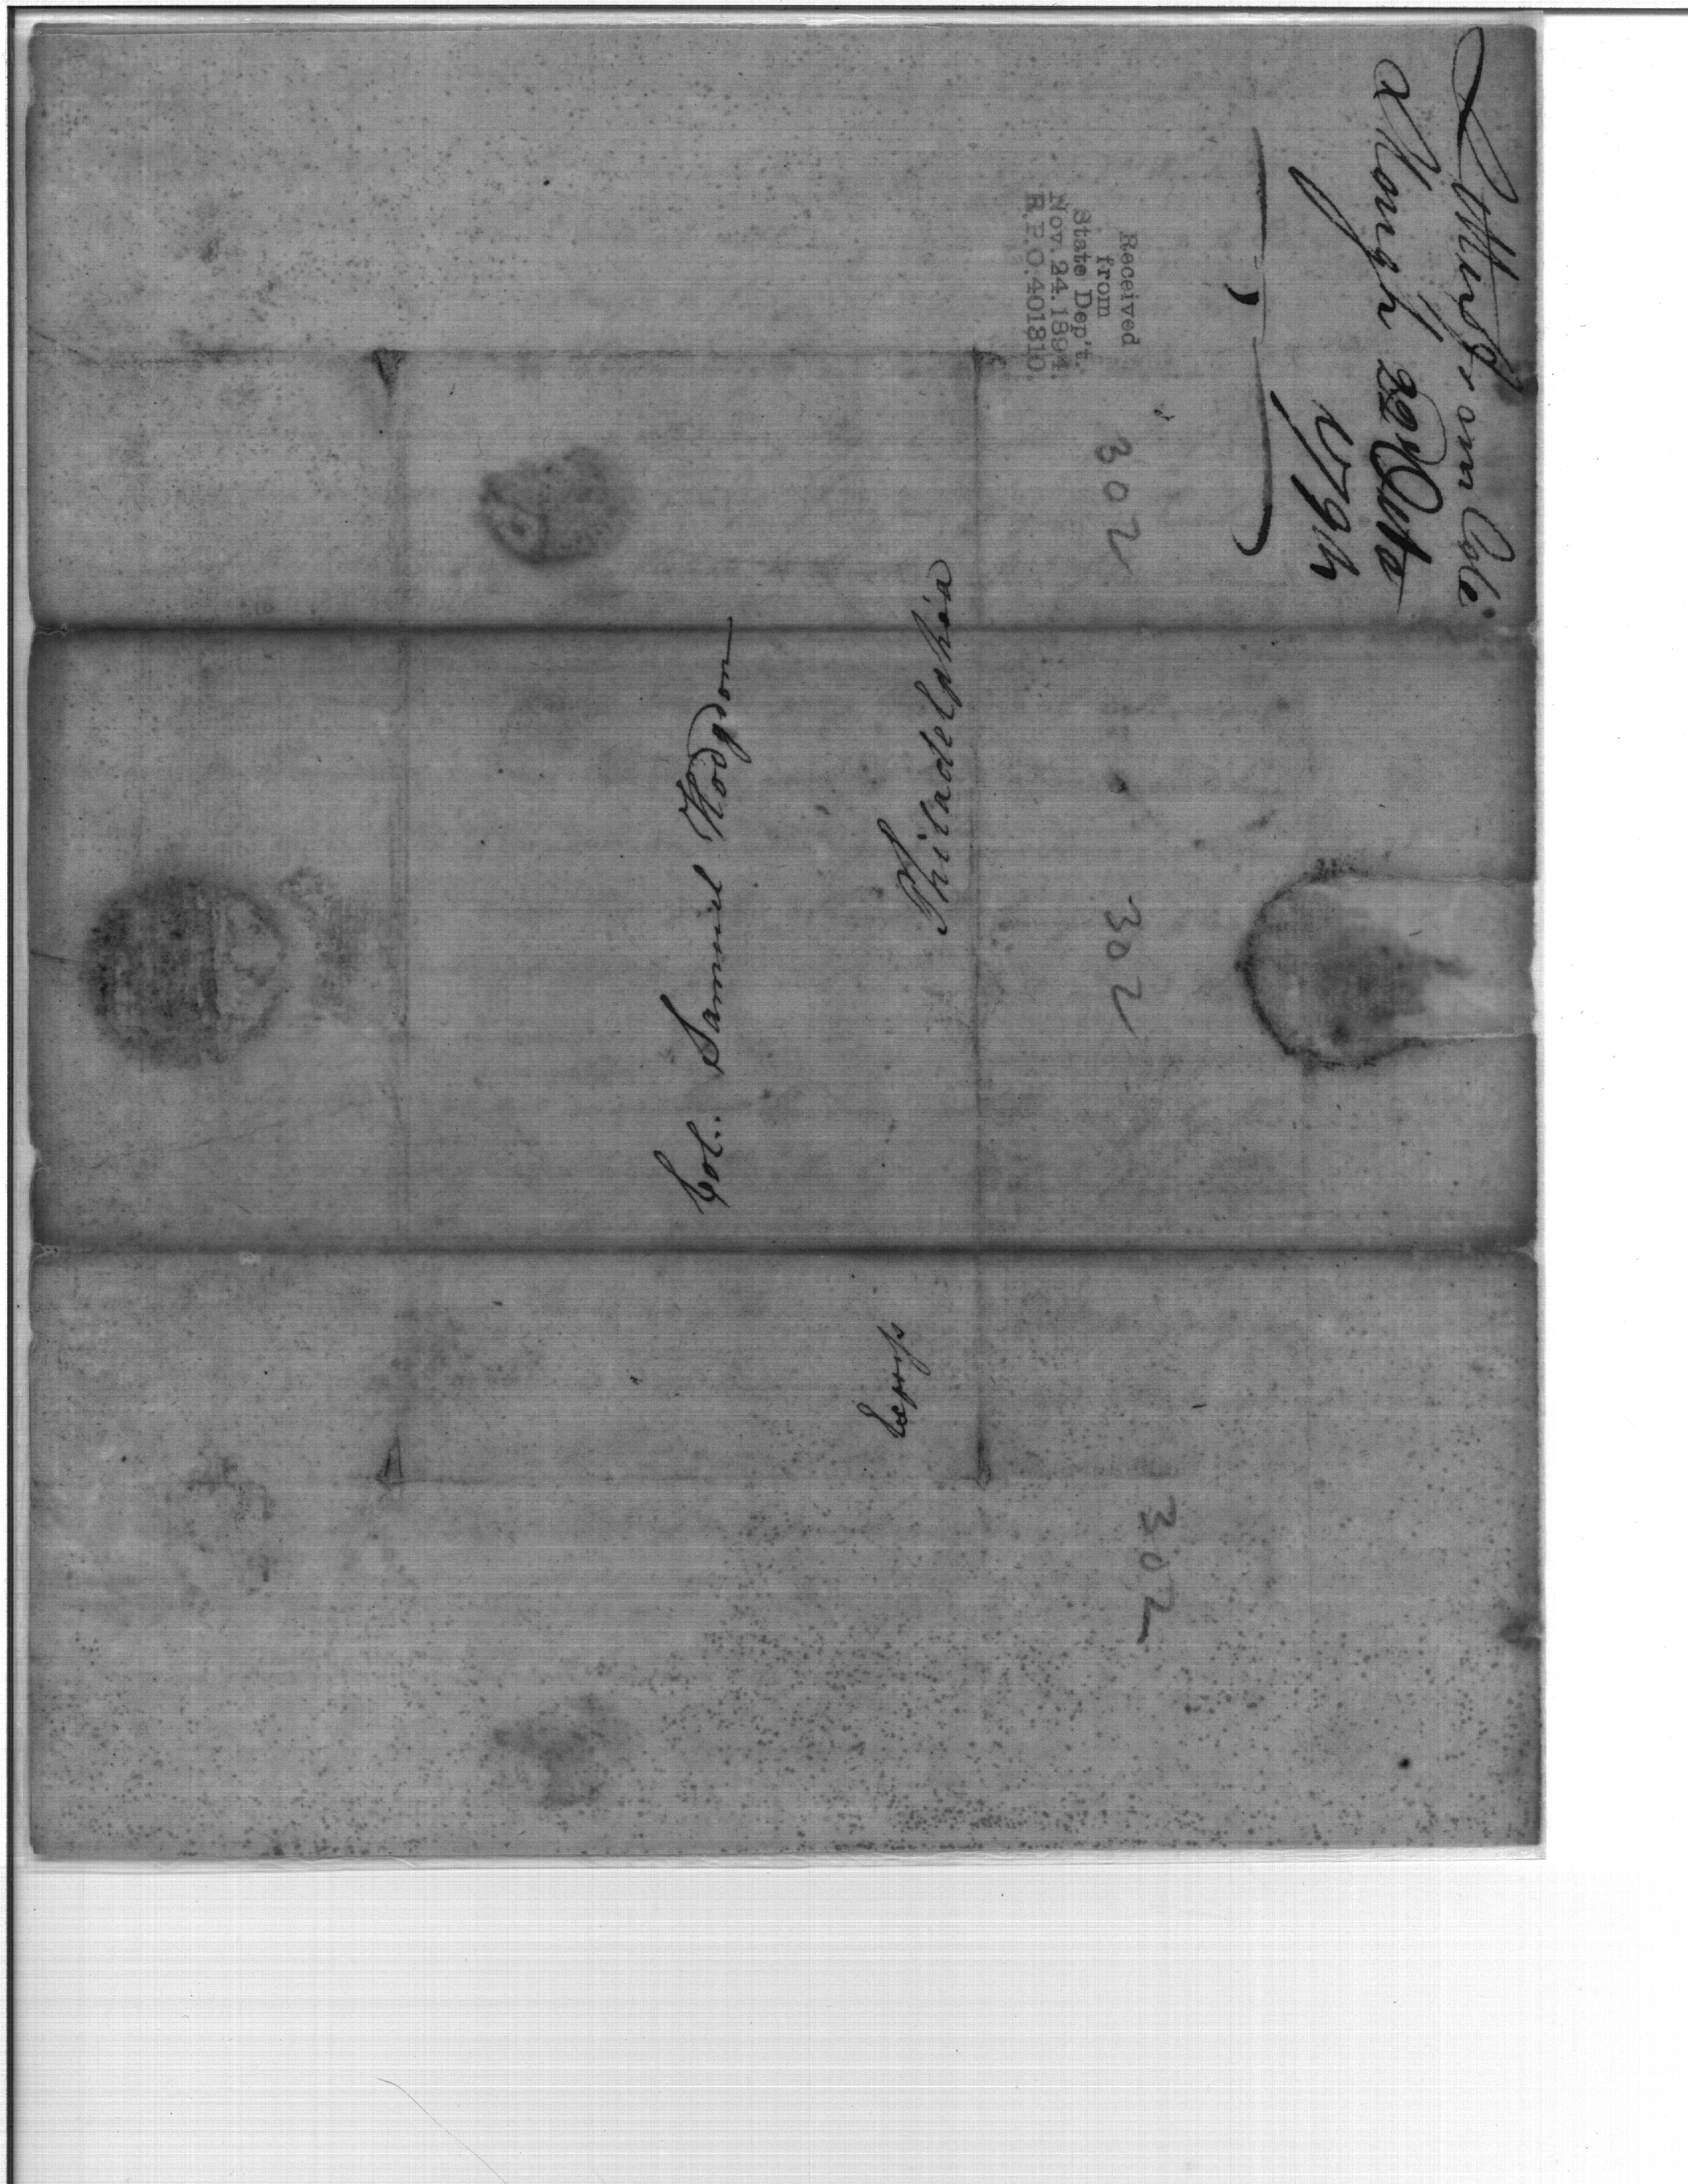 Letter from Colo
Slough 22d Octo
1794
Received
from
State Dep't.
Nov. 24. 1894.
R.P.O. 401310.
302
Col. Samuel Hodgdon
Philadelphia
Express
302
302